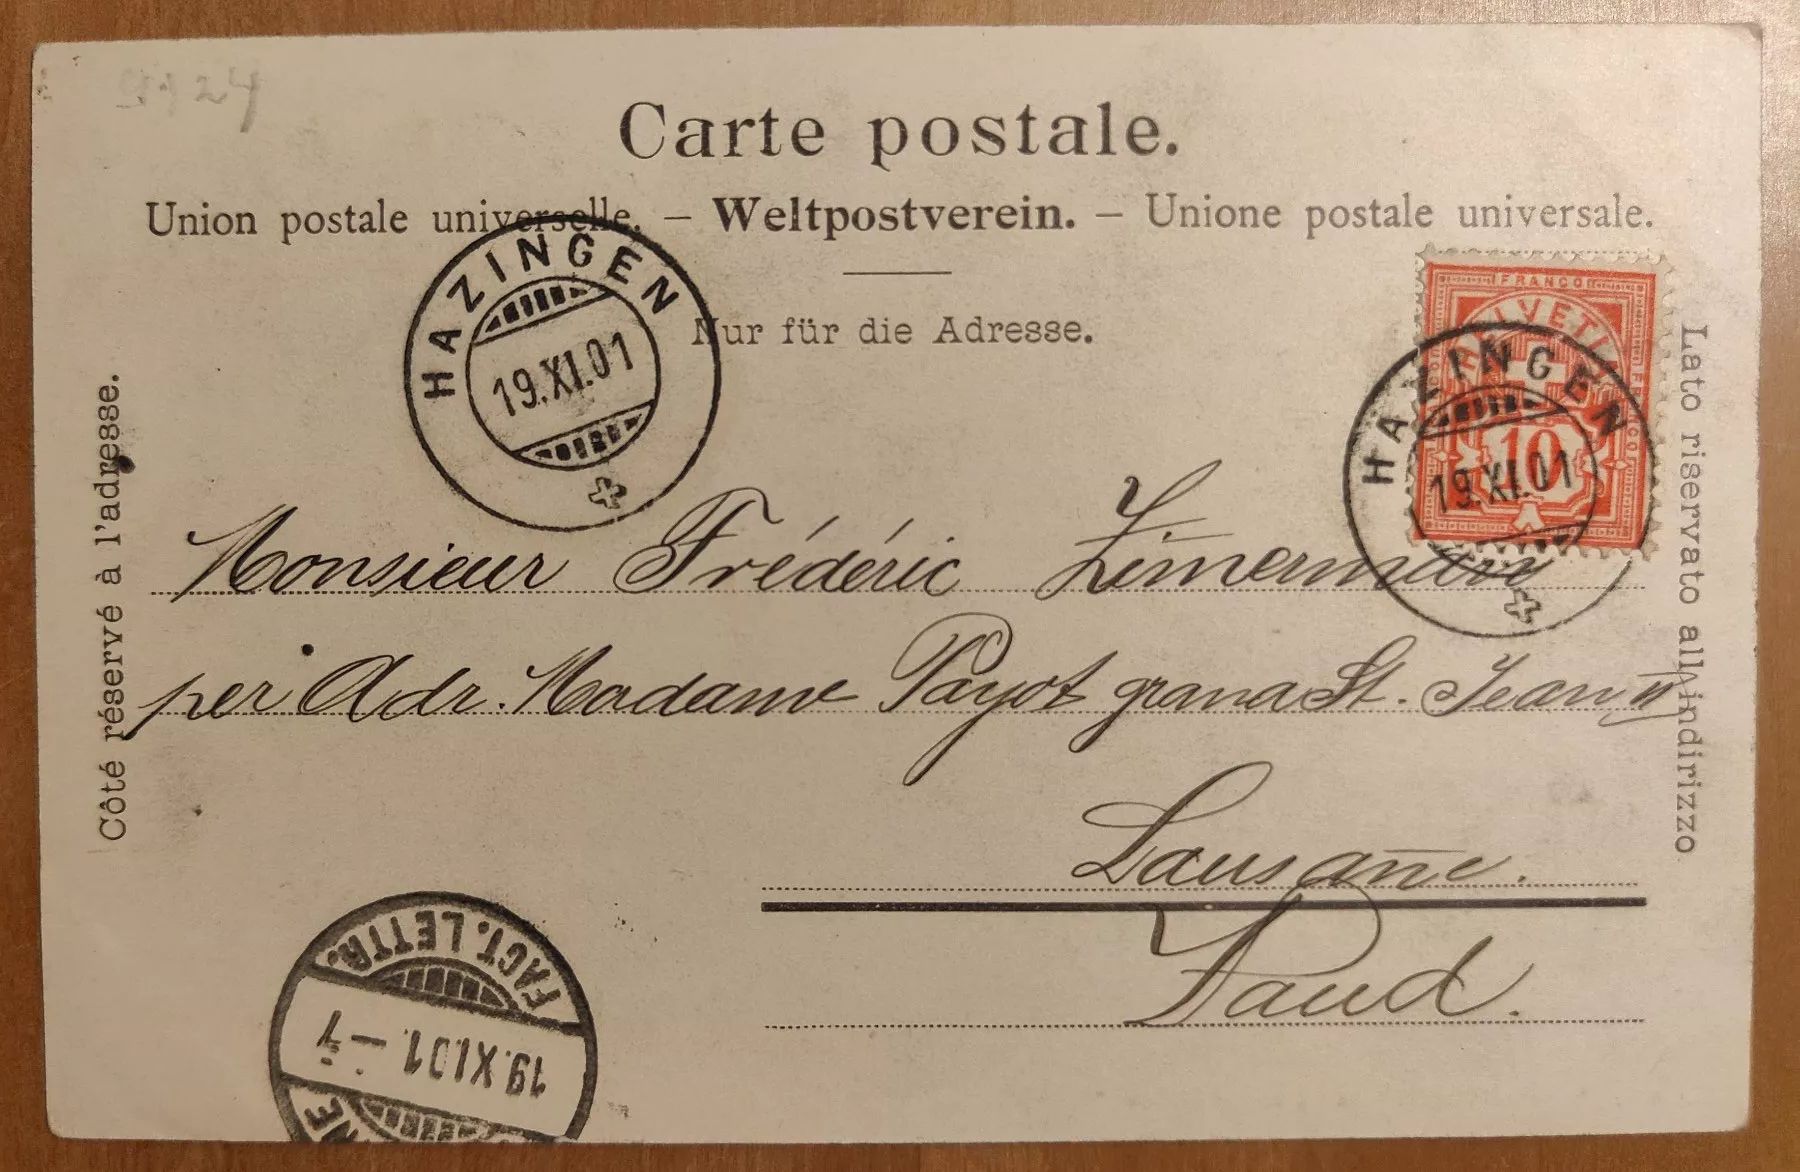 Carte postale.
Union postale universelle. – Weltpostverein. – Unione postale universale.
Nur für die Adresse.
Côté réservé à l'adresse.
Lato riservato all'indirizzo
HAZINGEN
19.XI.01
FRANCO
HELVETIA
10
HAZINGEN
19.XI.01
Monsieur Frédéric Zim̅ermann
per Adr. Madame Payot grana St. Jean 11
Lausan̅e.
Vaud.
FACT. LETTR.
19.XI.01.–7